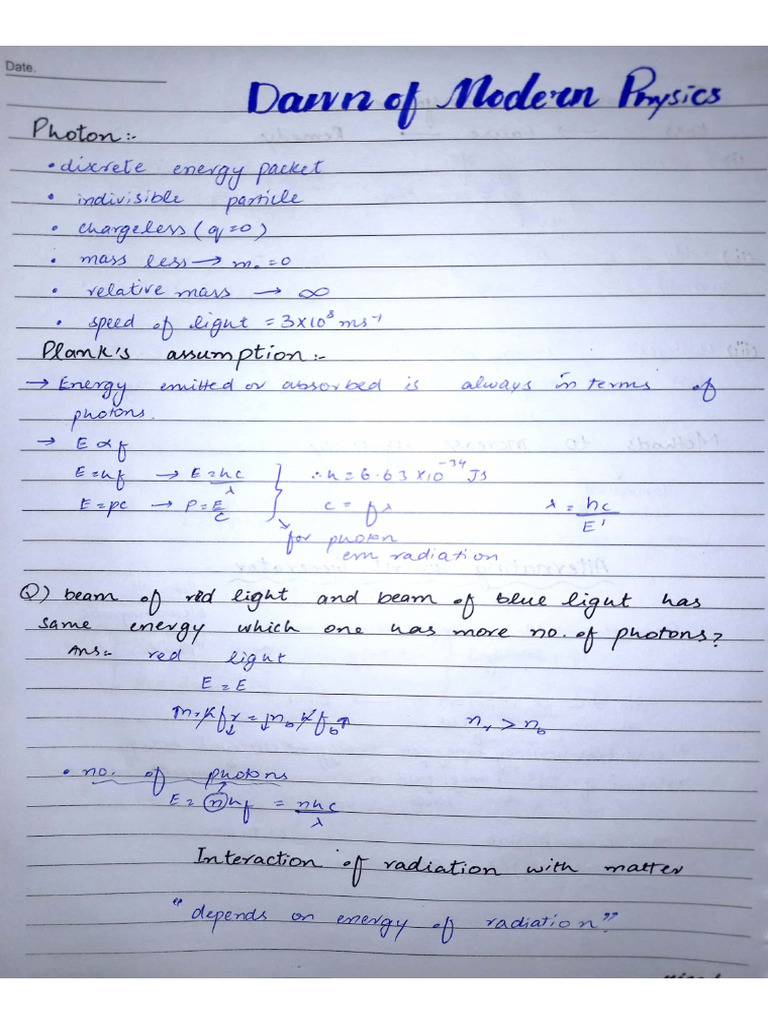 Date.
Dawn of Modern Physics
Photon:-
• discrete energy packet
• indivisible particle
• chargeless (q=0)
• mass less → m₀=0
• relative mass → ∞
• speed of light = 3×10⁸ ms⁻¹
Plank's assumption:-
→ Energy emitted or absorbed is always in terms of
photons.
→ E ∝ f
E=hf → E=hc/λ ∴h=6.63×10⁻³⁴ Js
E=pc → P=E/c c = fλ λ = hc/E
for photon
em radiation
Q) beam of red light and beam of blue light has
same energy which one has more no. of photons?
Ans:- red light
E = E
↑nᵣhfᵣ↓ = ↓n_b hf_b↑ nᵣ > n_b
• no. of photons
E = nhf = nhc/λ
Interaction of radiation with matter
"depends on energy of radiation"